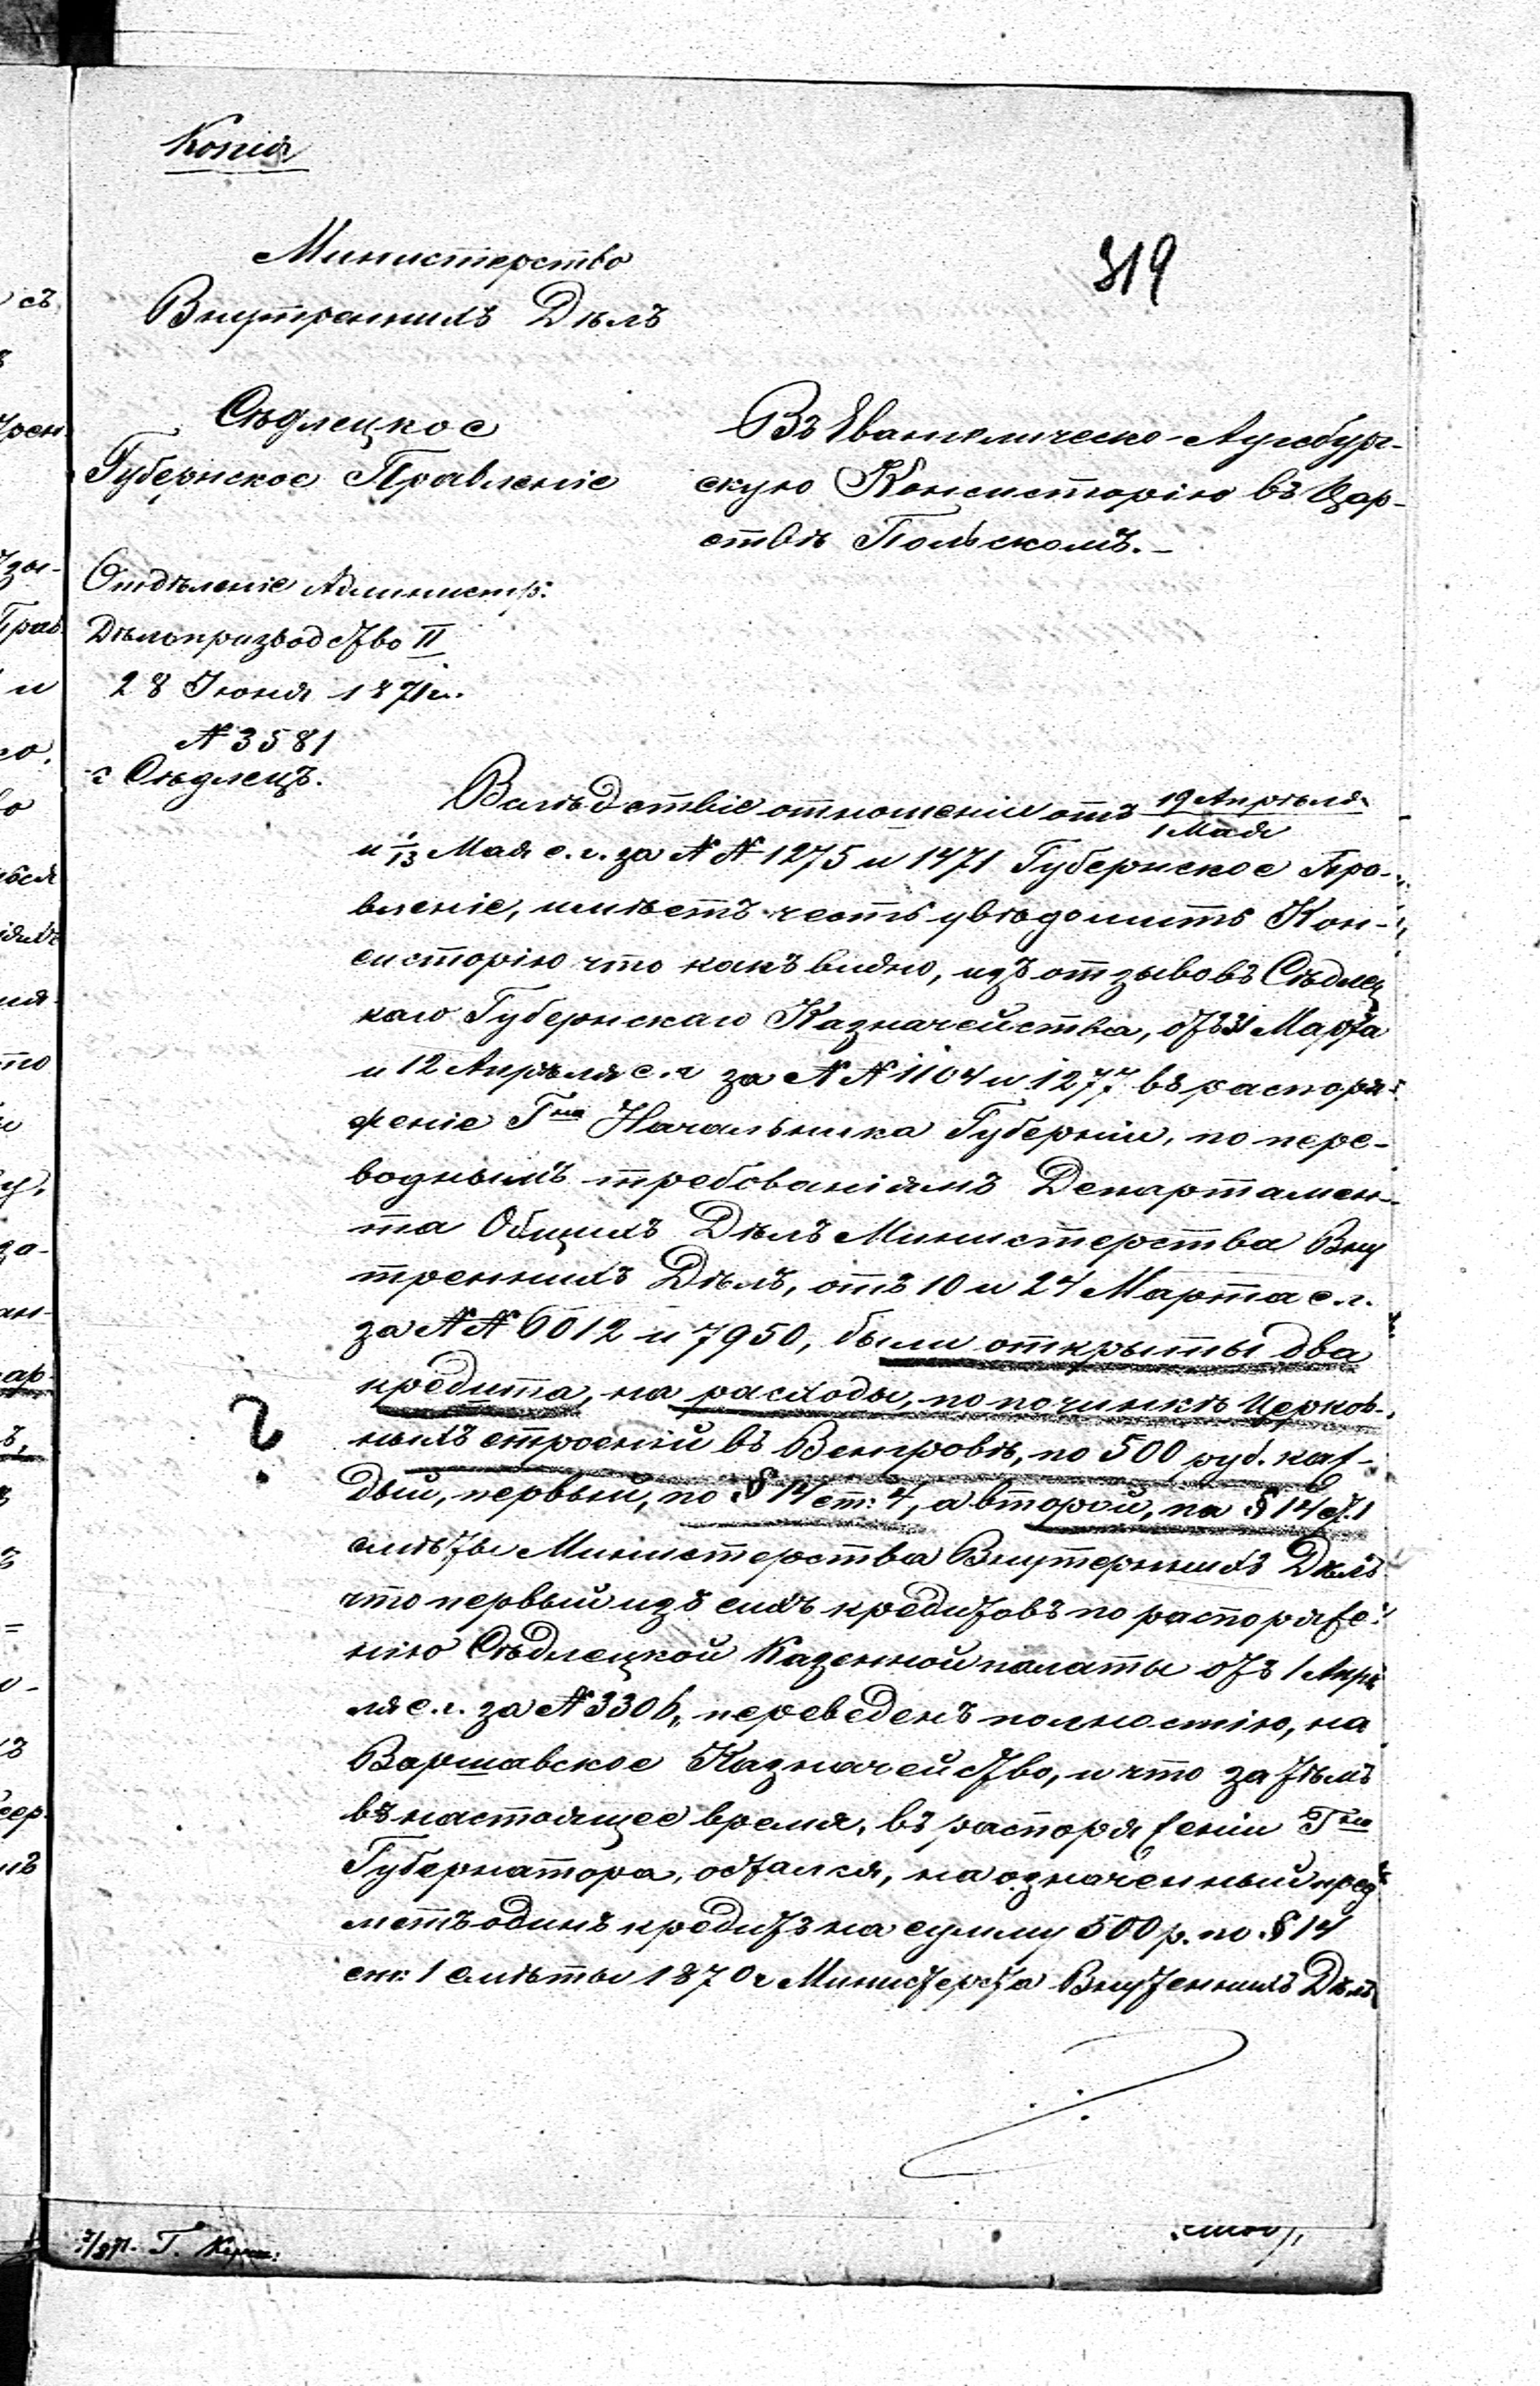 Копія
319
Министерство
Внутреннихъ Дѣлъ
Сѣдлецкое
Губернское Правленіе
Отдѣленіе Администр:
Дѣлопризводство II
28 Іюня 1871 г.
№ 3581
г Сѣдлецъ.
Въ Евангелическо-Аугсбург-
скую Консисторію въ Цар-
ствѣ Польскомъ.-
Вслѣдствіе отношеніи отъ 19 Апрѣля / 1 Мая
и 1/13 Мая с.г. за №№ 1275 и 1471 Губернское Пра-
вленіе, имѣетъ честь увѣдомить Кон-
систорію что какъ видно, изъ отзывовъ Сѣдлец
каго Губернскаго Казначейства, отъ 31 Марта
и 12 Апрѣля с.г за №№ 1104 и 1277 въ распоря-
женіе Гна Начальника Губерніи, по пере-
воднымъ требованіямъ Департамен-
та Общихъ Дѣлъ Министерства Вну
треннихъ Дѣлъ, отъ 10 и 24 Марта с.г.
за №№ 6012 и 7950, были открыты два
кредита, на расходы, по починкѣ Церков-
?
ныхъ строеній въ Венгровѣ, по 500 руб. каж-
дый, первый, по § 14 ст: 4, а второй, по § 14 ст. 1
смѣты Министерства Внутернихъ Дѣлъ
что первый изъ сихъ кредитовъ по распоряже-
нію Сѣдлецкой Казенной палаты отъ 1 Апрѣ
ля с.г. за № 3306, переведенъ полностію, на
Варшавское Казначейство, и что за тѣмъ
въ настоящее время, въ распоряженіи Гна
Губернатора, остался, на означенный пред
метъ одинъ кредитъ на сумму 500 р. по § 14
ст: 1 смѣты 1870 г Министерства Внутеннихъ Дѣлъ